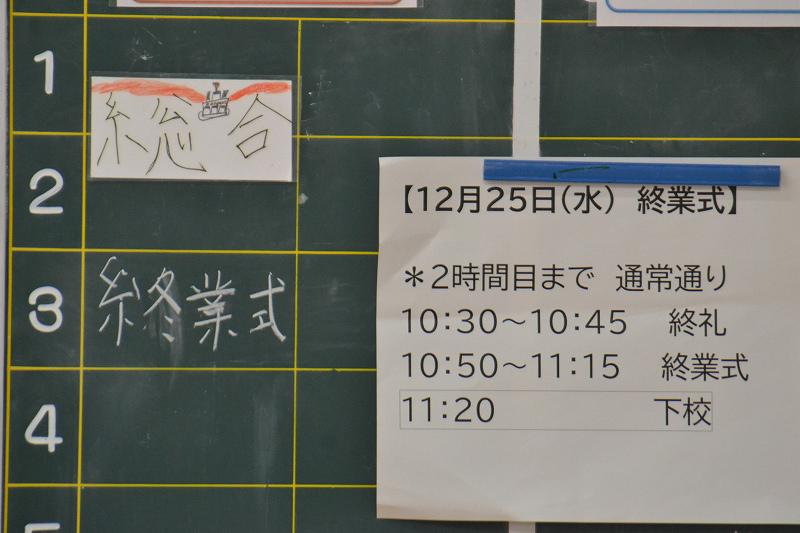 1
総合
2
3
終業式
4
【12月25日(水) 終業式】
＊2時間目まで 通常通り
10:30～10:45 終礼
10:50～11:15 終業式
11:20 下校